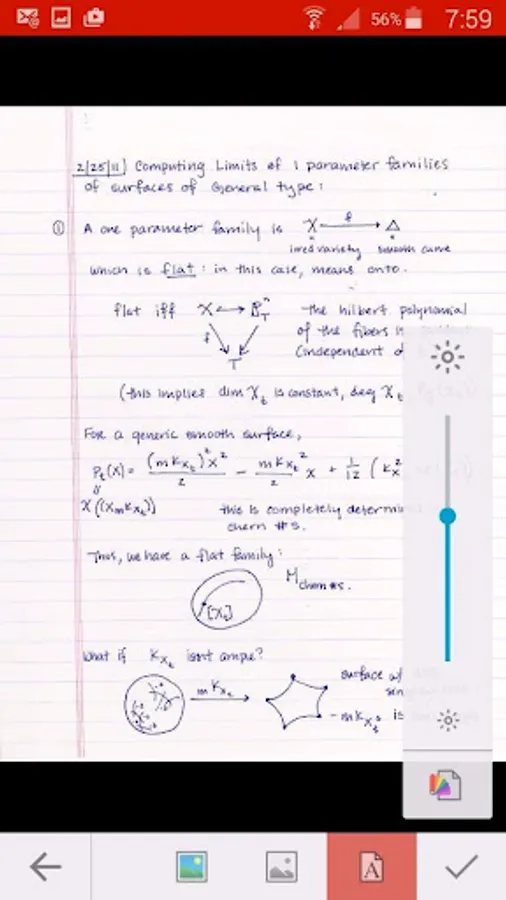 56% 7:59
2/25/11) Computing Limits of 1 parameter families
of surfaces of General type:
① A one parameter family is X —f→ Δ
irred variety smooth curve
which is flat: in this case, means onto.
flat iff X ↪ ℙⁿ_T the hilbert polynomial
of the fibers is
f (independent of
T
(this implies dim X_t is constant, deg X_t,
For a generic smooth surface,
P_t(x) = (mK_{X_t})² x² / 2 − mK_{X_t}² / 2 x + 1/12 (K_X²
χ((x m K_{X_t})) this is completely determin
chern #s.
Thus, we have a flat family:
[X_t] M_{chern #s}.
What if K_{X_t} isn't ample?
mK_{X_t} surface w/
- mK_{X_t} is
A